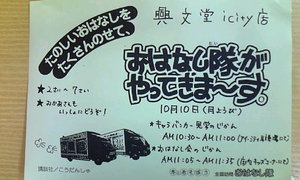 興文堂 icity店
たのしいおはなしを
たくさんのせて、
おはなし隊が
やってきま〜す。
10月10日(月ようび)
★2さい〜7さい
★おかあさんも
いっしょにどうぞ!
★キャラバンカー見学のじかん
AM10:30〜AM11:00
★おはなし会のじかん
AM11:05〜AM11:35
講談社/こうだんしゃ
全国訪問おはなし隊